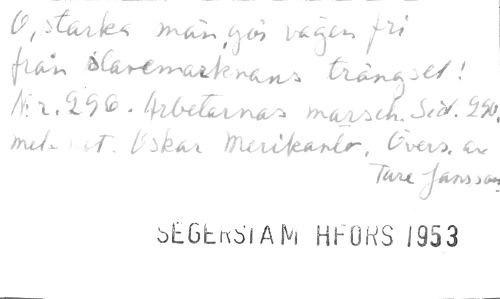 O, starka män, gör vägen fri
från slavemarknans trängsel!
Nr. 296. Arbetarnas marsch. Sid. 290.
mel. Oskar Merikanto. Övers. av
Ture Jansson
SEGERSTAM HFORS 1953